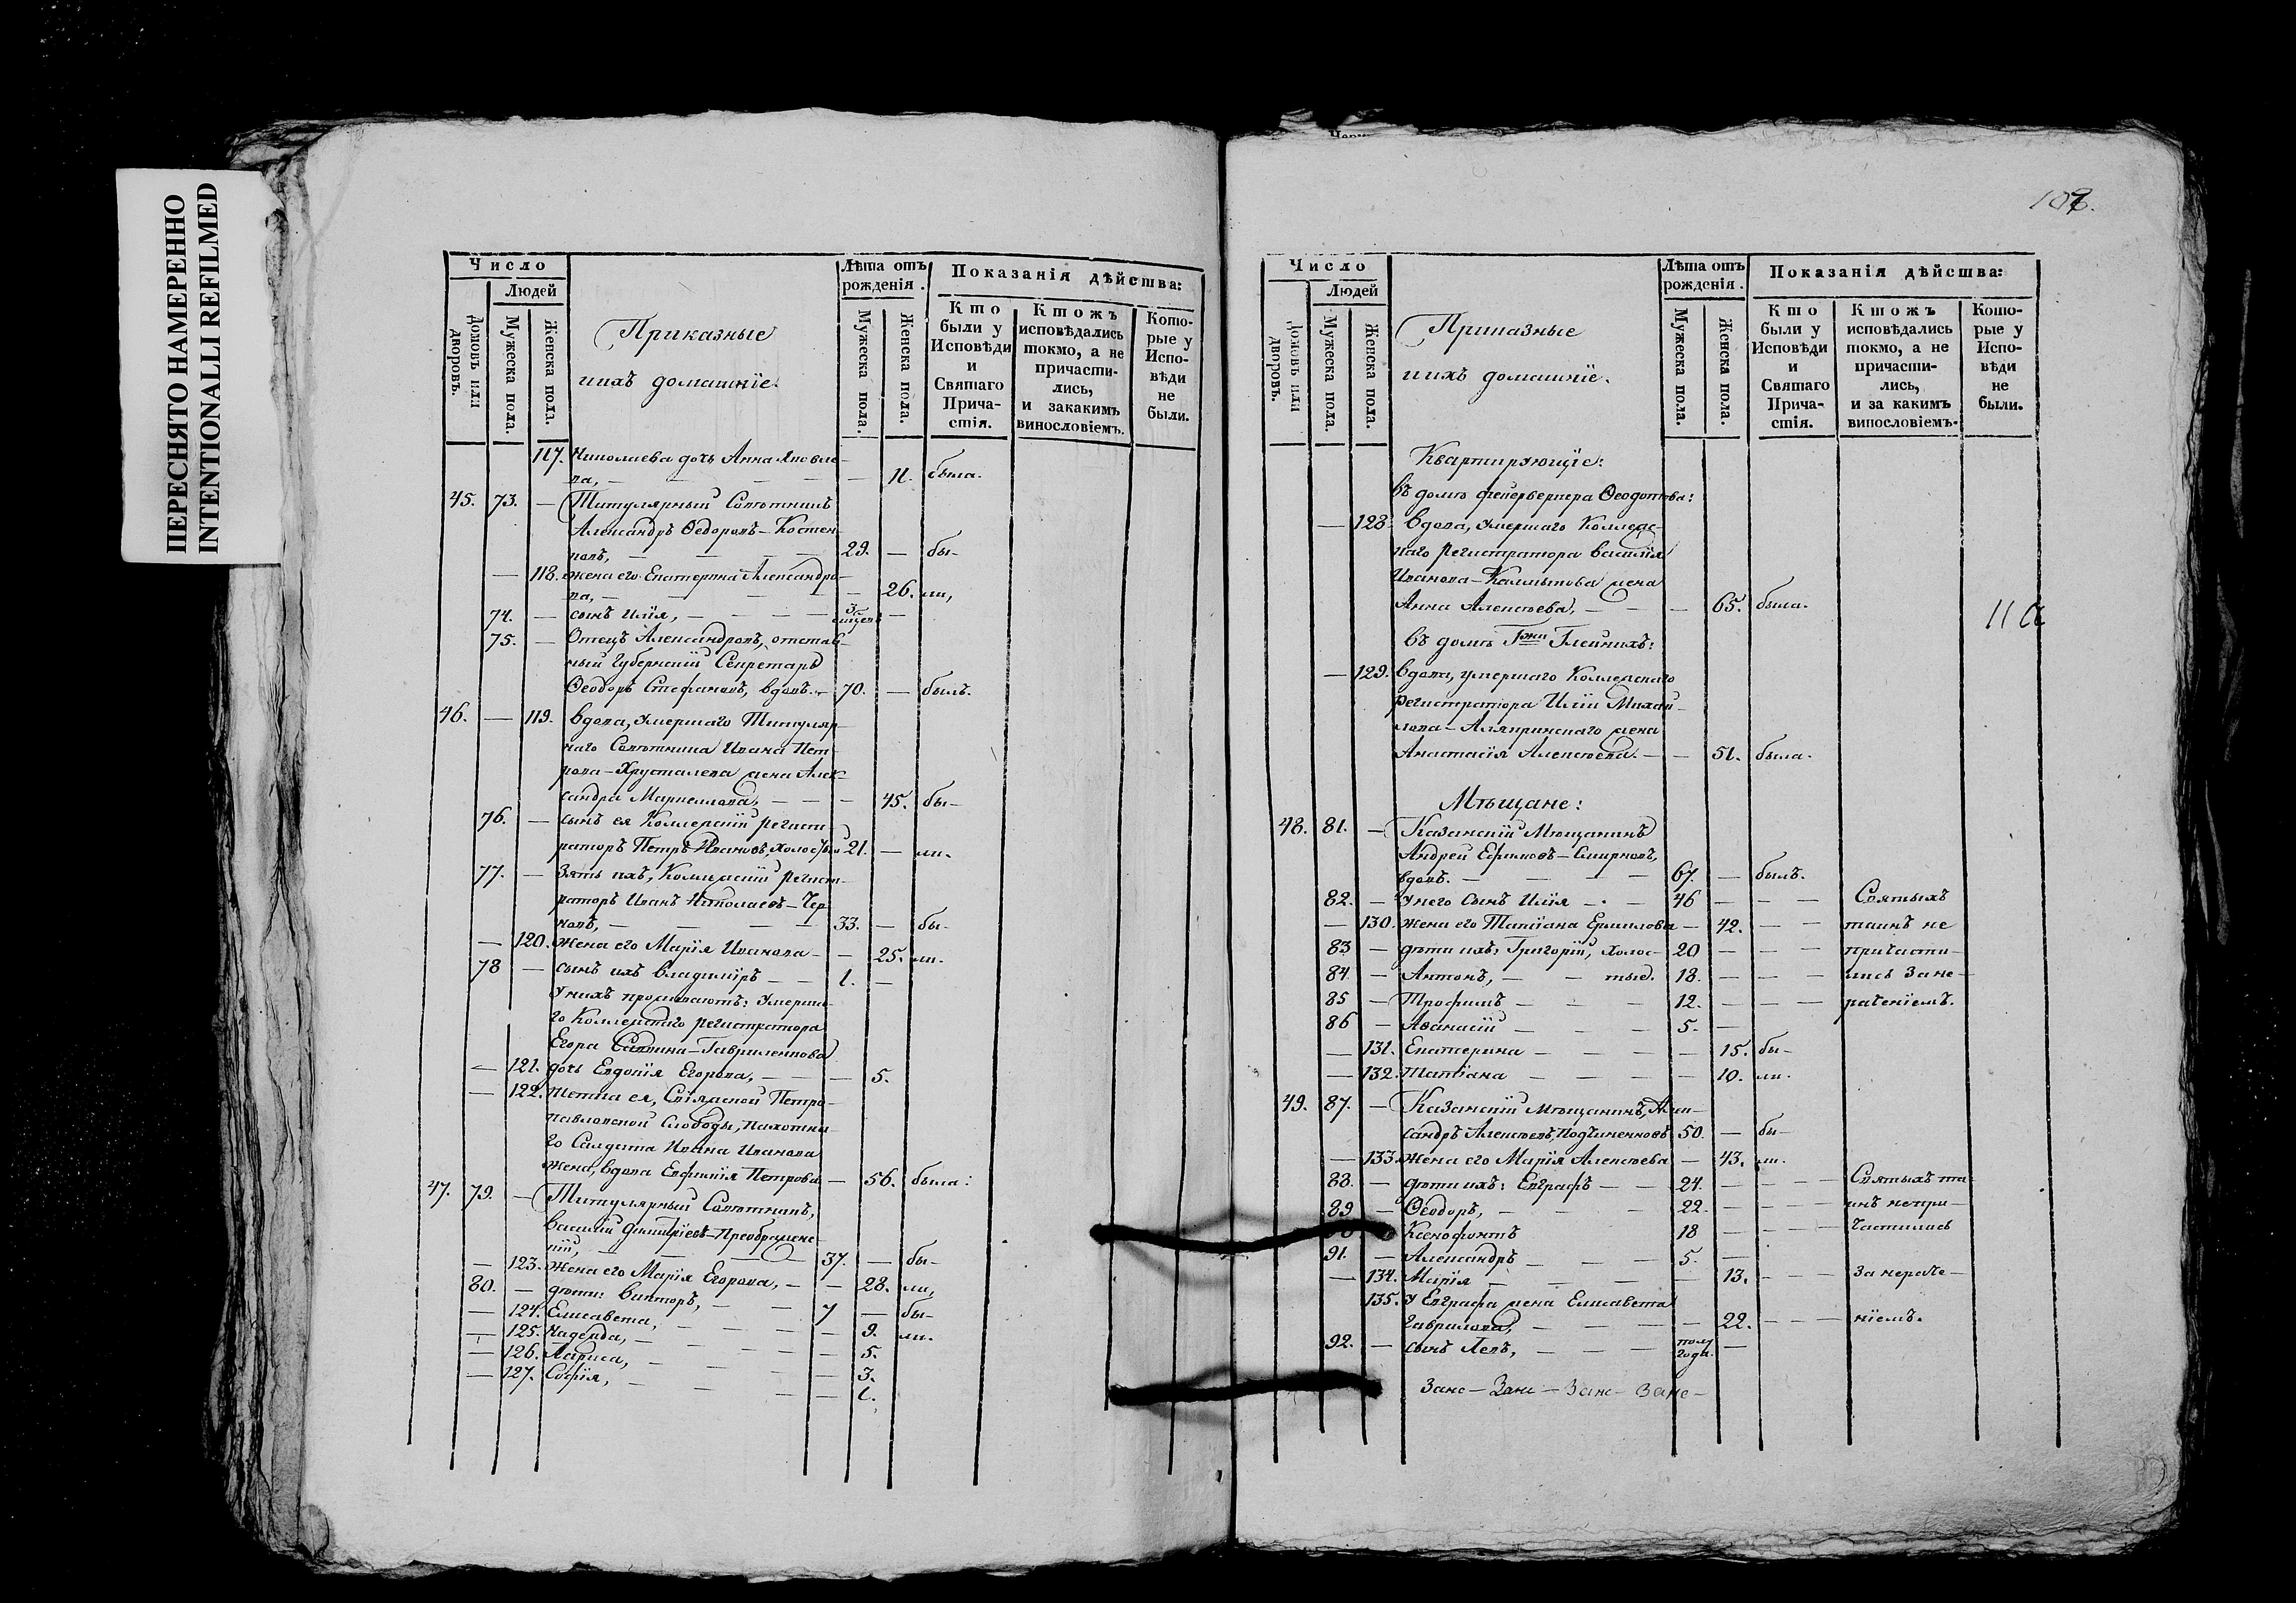 ПЕРЕСНЯТО НАМЕРЕННО
INTENTIONALLI REFILMED
Число
Людей
Домовъ или дворовъ.
Мужеска пола.
Женска пола.
Приказные
иихъ домашнїе.
Лѣта отъ рожденія.
Мужеска пола.
Женска пола.
Показанія дѣйства:
Кто были у Исповѣди и Святаго Причастія.
Ктожъ исповѣдались токмо, а не причастились, и закакимъ винословіемъ.
Которые у Исповѣди не были.
117. Николаева дочь Анна Яковле-
ва, — — 11. была.
45. 73. — Титулярный Совѣтникъ
Александръ Ѳедоровъ – Костен-
ковъ, — 29. — бы-
— 118. жена его Екатерина Александро-
ва, — — 26. ли,
74. — сынъ Илїя, — 3
75. — Отецъ Александровъ, отстав-
ный Губернскїй Секретарь
Ѳеодоръ Стефановъ, вдовъ. — 70. — былъ.
46. — 119. вдова, умершаго Титуляр-
наго Совѣтника Ивана Пет-
рова – Хрусталева жена Алек-
сандра Маркеллова, — — 45. бы-
76. — сынъ ея Коллежскїй регист-
раторъ Петръ Ивановъ, холостый 21. — ли.
77. — Зять ихъ, Коллежскїй регист-
раторъ Иванъ Николаевъ – Чер-
новъ, — 33. — бы-
— 120. жена его Марїя Иванова — — 25. ли.
78 — сынъ ихъ Владимїръ — — 1. —
У нихъ проживаютъ: умерша-
го Коллежскаго регистратора
Егора Саввина – Гавриленкова
— 121. дочь Евдокїя Егорова, — — 5.
— 122. тетка ея, Сїяжской Петро-
павловской Слободы, пахотна-
го Салдата Ивана Иванова
жена, вдова Евфимїя Петрова — 56. была:
47. 79. — Титулярный Совѣтникъ,
Василїй Димитрїевъ – Преображенс-
кїй, — 37. — бы-
— 123. жена его Марїя Егорова, — — 28. ли,
80. — дѣти: Викторъ, — — 7 — бы-
— 124. Елисавета, — — 9. ли.
— 125. Надежда, — — 5.
— 126. Лариса, — — 3.
— 127. Софїя, — — 1.
Число
Людей
Домовъ или дворовъ.
Мужеска пола.
Женска пола.
Приказные
иихъ домашнїе.
Лѣта отъ рожденія.
Мужеска пола.
Женска пола.
Показанія дѣйства:
Кто были у Исповѣди и Святаго Причастія.
Ктожъ исповѣдались токмо, а не причастились, и за какимъ винословіемъ.
Которые у Исповѣди не были.
Квартирующїе:
въ домѣ фейерверкера Ѳеодотова:
— 128. вдова, умершаго Коллежс-
каго регистратора Василїя
Иванова – Калмыкова жена
Анна Алексѣева, — — 65. была.
въ домѣ Гжи Глейнихъ:
— 129. вдова, умершаго Коллежскаго
регистратора Илїи Михай-
лова – Алякринскаго жена
Анастасїя Алексѣева. — — 51. была.
Мѣщане:
48. 81. — Казанскїй Мѣщанинъ
Андрей Ефимовъ – Смирновъ,
вдовъ. — 67. — былъ.
82. — У него сынъ Илїя — 46 — — Святыхъ
— 130. жена его Татїана Ермилова — 42. — — таинъ не
83 — дѣти ихъ: Григорїй, холос- 20 — — причасти-
84 — Антонъ, — — тые. 18. — — лись за не-
85 — Трофимъ — 12. — — раченїемъ.
86 — Аѳанасїй — 5. —
— 131. Екатерина — — 15. бы-
— 132. Татїана — — 10. ли.
49. 87. — Казанскїй мѣщанинъ, Алек-
сандръ Алексѣевъ, Подчиненновъ 50. — бы-
— 133. жена его Марїя Алексѣева — 43. ли.
88. — дѣти ихъ: Евграфъ — — 24. — — Святыхъ та-
89 — Ѳеодоръ, — 22. — — инъ непри-
Ксенофонтъ 18 — — частились
91. — Александръ — 5. —
— 134. Марїя — — 13. — — за нераче-
135. У Евграфа жена Елисавета
Гаврилова, — — 22. — — нїемъ.
92. — сынъ Левъ, — пол года. —